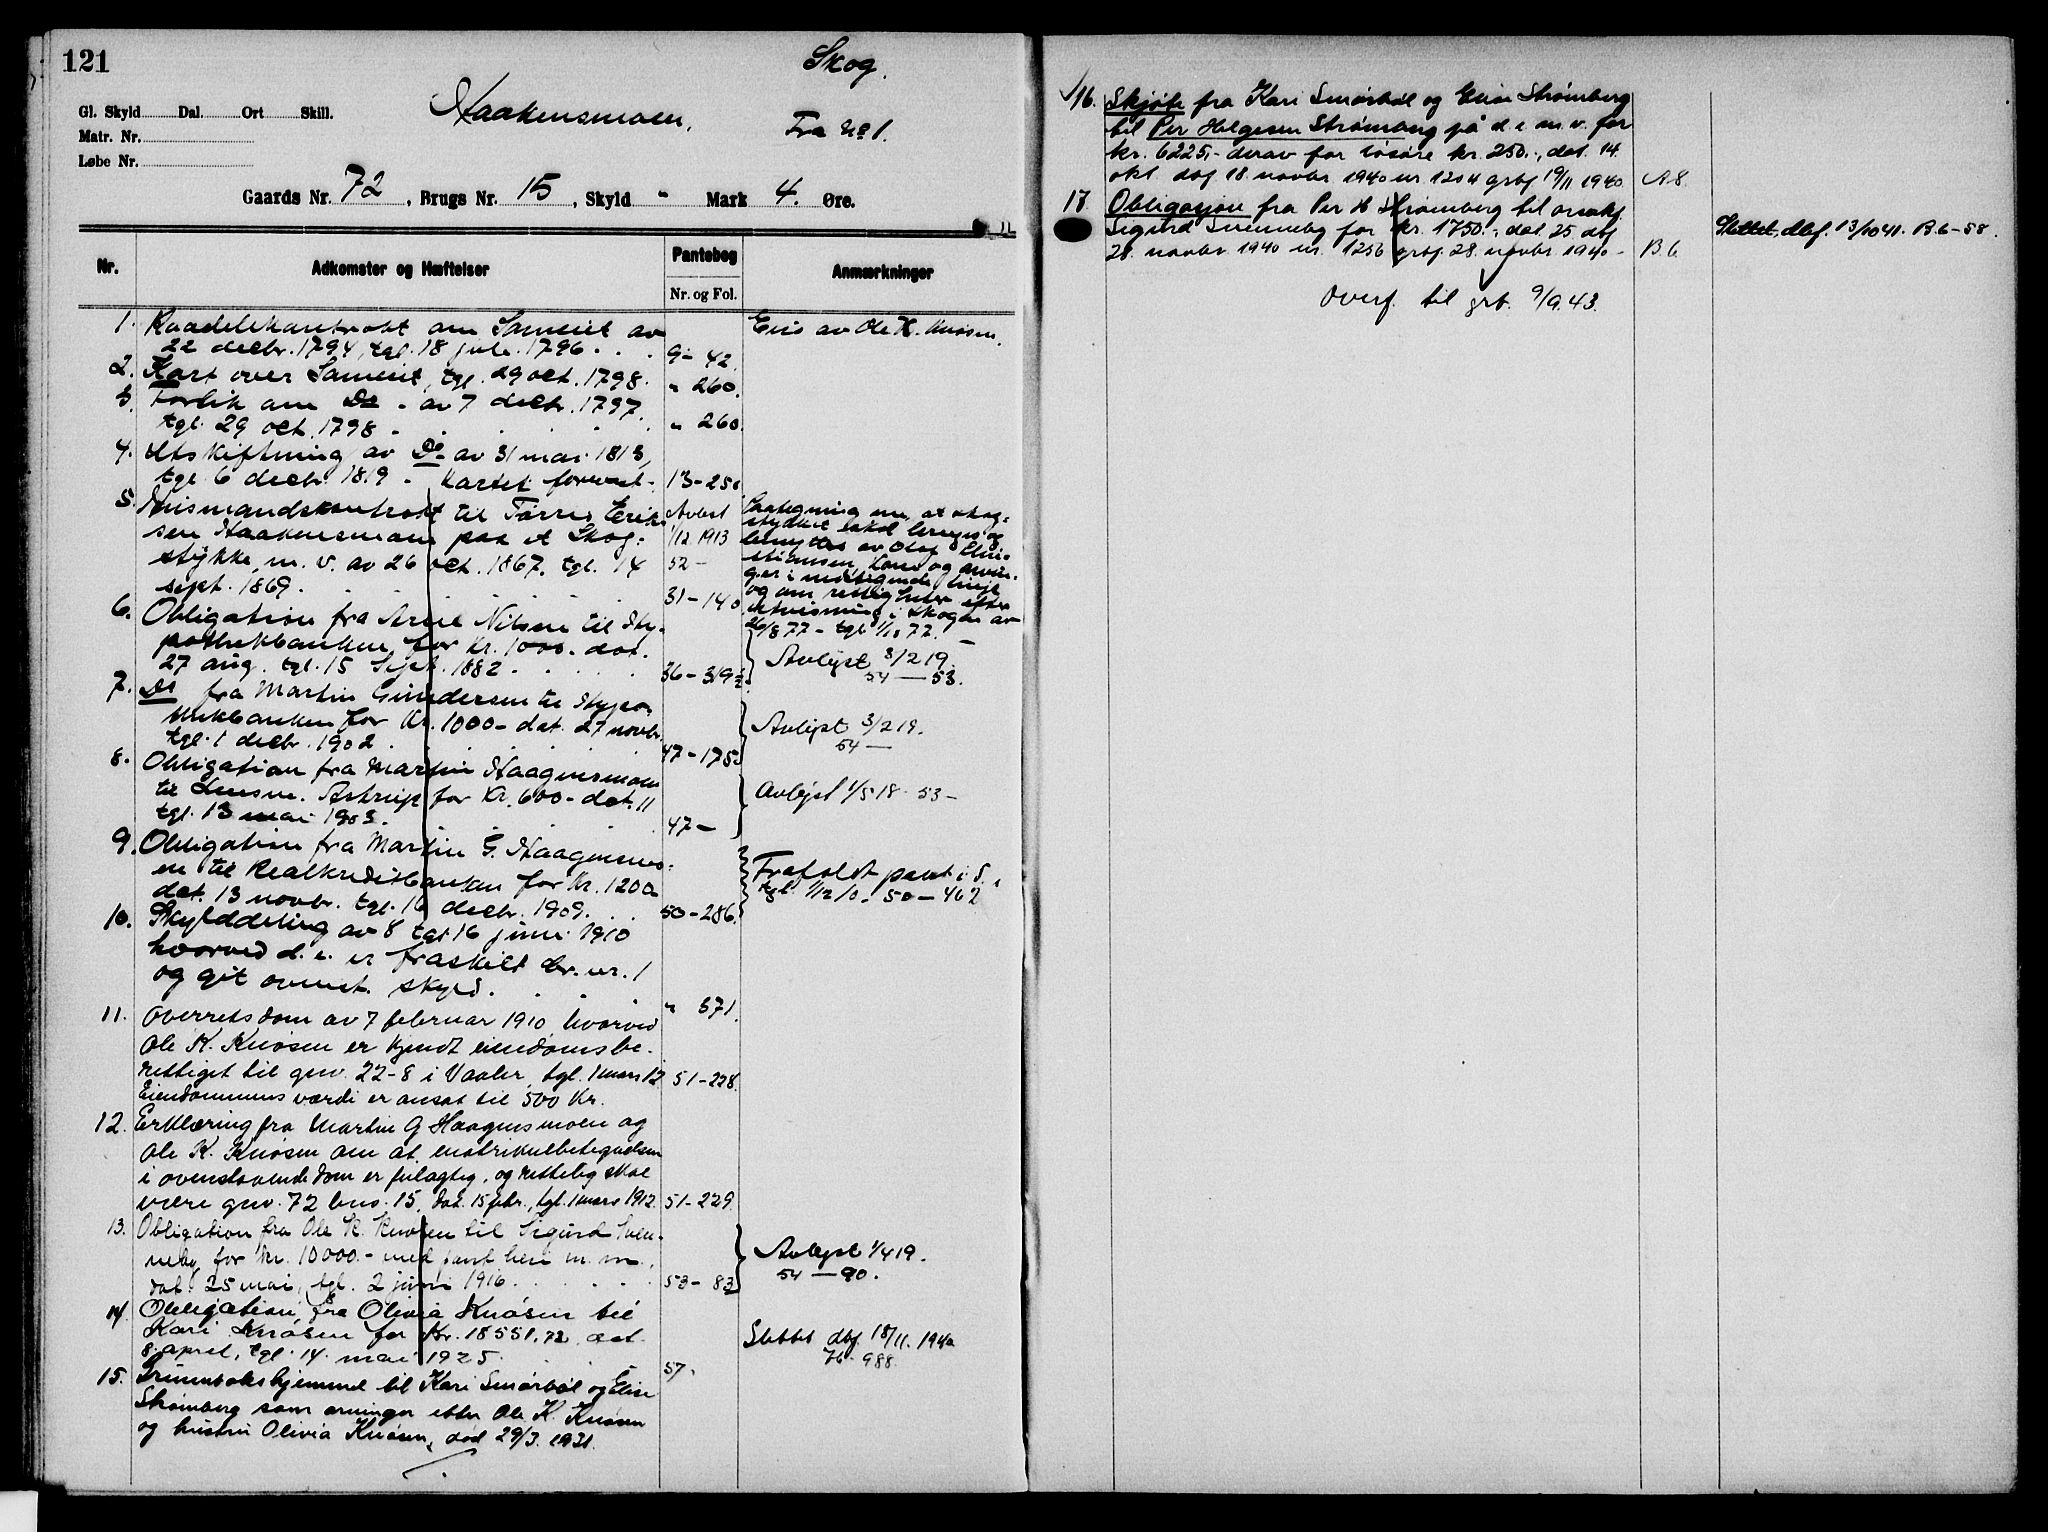 121
Skog.
Gl. Skyld Dal. Ort Skill.
Haakensmoen.
Fra No 1.
Matr. Nr.
Løbe Nr.
Gaards Nr. 72, Brugs Nr. 15, Skyld " Mark 4. Øre.
Nr.
Adkomster og Hæftelser
Pantebog
Nr. og Fol.
Anmærkninger
1. Raadelekontrakt om Sameiet av
22 decbr. 1794, tgl. 18 1796 . . . 9 - 42.
Eies av Ole K. Knøsen.
2. Kart over Sameiet, tgl. 29 oct. 1798. " 260.
3. Forlik om Do - av 7 decbr. 1797.
tgl. 29 oct. 1798 - . . . . . " 260
4. Utskiftning av Do av 31 mai 1813,
tgl. 6 decbr. 1819 - Kartet forevist. 13-250
5. Husmandskontrakt til Tørris Erik-
sen Haakensmoen paa et Skog-
stykke m. v. av 26 oct. 1867. tgl. 14
sept. 1869. . . . . . 31-140
Avlest
1/12 1913
52 -
Paategning om, at skog-
stykket skal og
benyttes av Olaf Chri-
stiansen, Kone og arvin-
ger i nedstigende linje
og om rettigheter efter
utvisning i skogen av
26/8 77 - tgl. 1/10 77. -
6. Obligation fra Arne Nilsen til Hy-
pothekbanken for Kr. 1000 - dat.
27 aug. tgl. 15 Sept. 1882 . . . . . 36-319
Avlyst 3/2 19.
54 — 53.
7. Do fra Martin Gundersen til Hypo-
thekbanken for Kr. 1000 - dat. 27 novbr.
tgl. 1 decbr. 1902. . . . . 47-175
Avlyst 3/2 19.
54 —
8. Obligation fra Martin Haagensmoen
til Lensm. Astrup for Kr. 600 - dat. 11
tgl. 13 mai 1903. . . . . 47 -
Avlyst 1/5 18. 53 -
9. Obligation fra Martin G. Haagensmo-
en til Realkreditbanken for Kr. 1200
dat. 13 novbr. tgl. 16 decbr. 1909. . . 50-286.
Frafaldt pant i d. e.
tgl. 1/12 10. 50 - 462
10. Skylddeling av 8 tgl. 16 juni 1910
hvorved d. e. er fraskilt br. nr. 1
og git ovennt. skyld. . . . . " 571.
11. Overretsdom av 7 februar 1910 hvorved
Ole K. Knøsen er kjendt eiendomsbe-
rettiget til gnr. 22-8 i Vaaler, tgl. 1 mars 12 51-228.
Eiendommens værdi er ansat til 500 Kr.
12. Erklæring fra Martin G Haagensmoen og
Ole K. Knøsen om at matrikulbetegnelsen
i ovenstaaende dom er feilagtig, og rettelig skal
være gnr. 72 bnr. 15, dat. 15 febr., tgl. 1 mars 1912. 51-229.
13. Obligation fra Ole K. Knøsen til Sigurd Sven-
neby for Kr. 10000.- med pant heri m. m.,
dat. 25 mai, tgl. 2 juni 1916. . . . . . . 53 - 83
Avlyst 1/4 19.
54 — 90.
14. Obligation fra Olivia Knøsen til
Kari Knøsen for Kr. 18551.72 dat.
8. april, tgl. 14. mai 1925. . . . 57.
Slettet dbf. 18/11. 1940
76 - 988.
15. Grunnbokshjemmel til Kari Smørbøl og Elise
Strømberg som arvinger etter Ole K. Knøsen
og hustru Olivia Knøsen, død 29/3. 1931.
16. Skjøte fra Kari Smørbøl og Elise Strømberg
til Per Helgesen Strømberg på d. e. m. v. for
kr. 6225,- derav for løsøre kr. 250.-, dat. 14.
okt dbf 18. novbr 1940 nr. 1204 grbf 19/11 1940. A 8.
17 Obligasjon fra Per H Strømberg til orsakf.
Sigurd Svenneby for kr. 1750.-, dat. 25 dbf
28. novbr. 1940 nr. 1256 grbf. 28. novbr. 1940 - B. 6.
Slettet, dbf. 13/10 41. B. 6 - 58.
Overf. til grb. 9/9. 43.